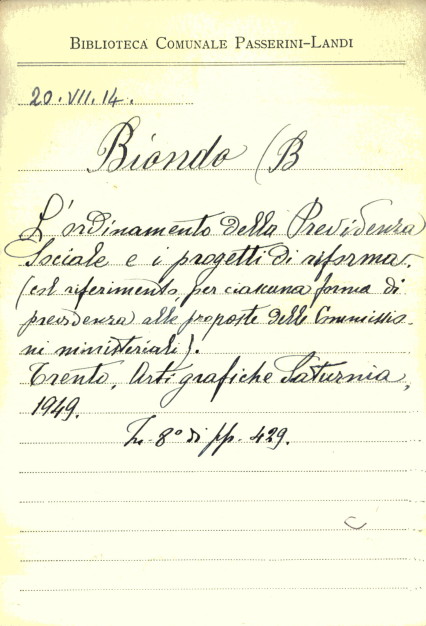 BIBLIOTECA COMUNALE PASSERINI-LANDI
20.VII.14.
Biondo (B
L'ordinamento della Previdenza
Sociale e i progetti di riforma.
(col riferimento, per ciascuna forma di
previdenza alle proposte delle Commissio-
ni ministeriali).
Trento, Arti grafiche Saturnia,
1949.
In-8° di pp. 429.